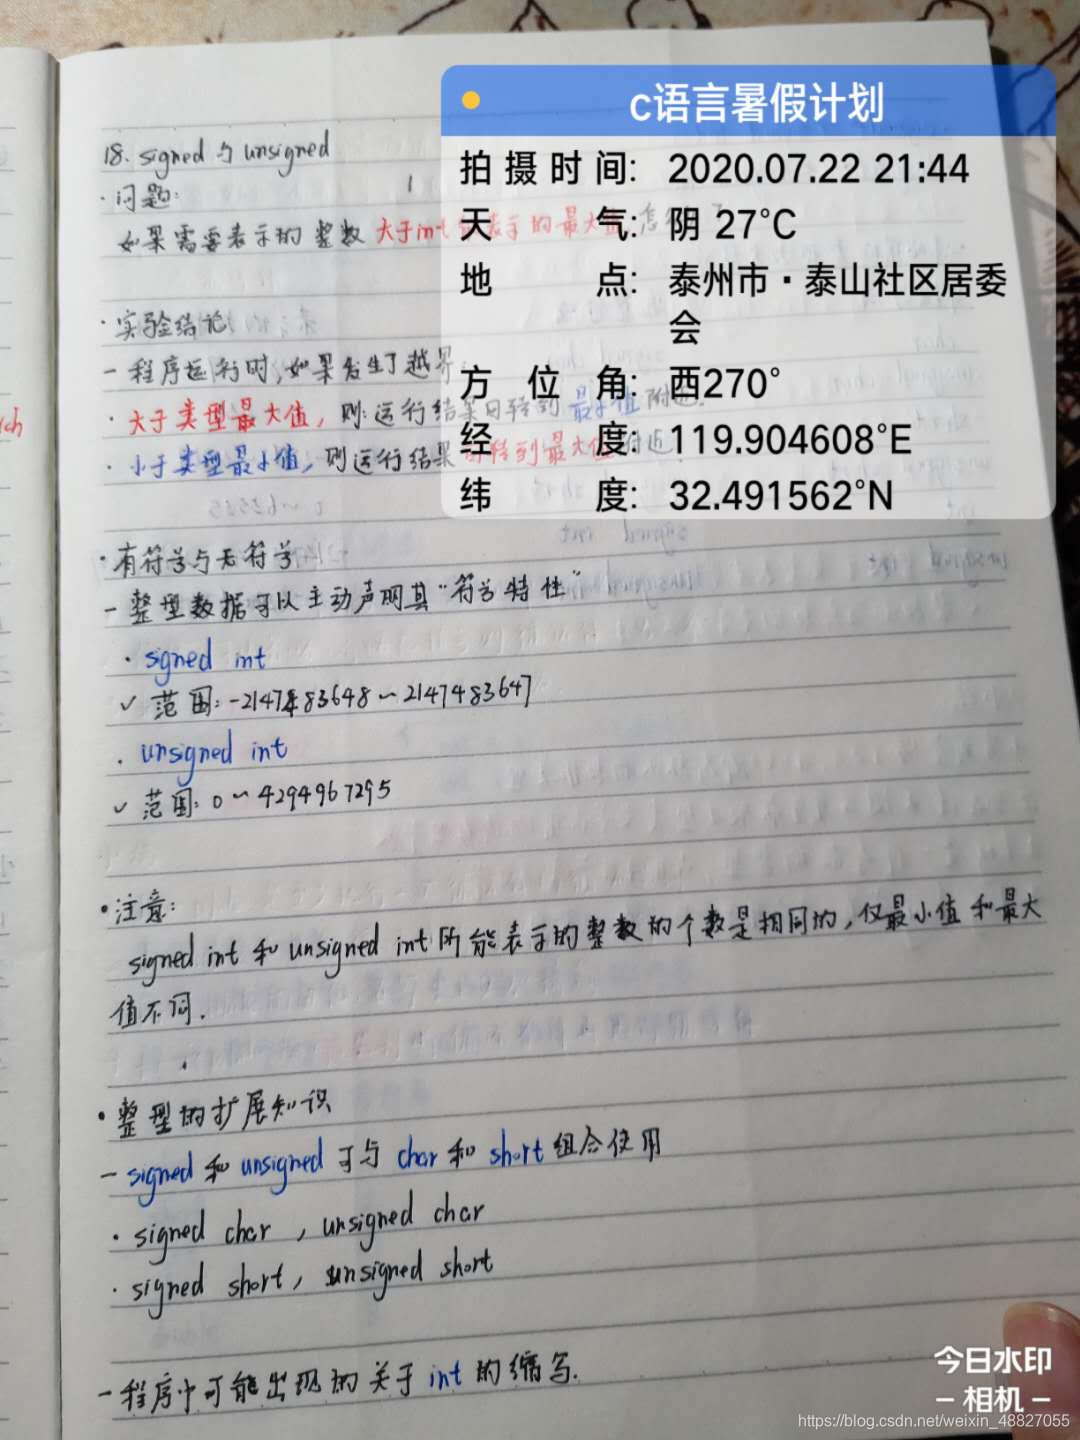 c语言暑假计划
拍摄时间: 2020.07.22 21:44
天气: 阴 27°C
地点: 泰州市·泰山社区居委
会
方位角: 西270°
经度: 119.904608°E
纬度: 32.491562°N
18. signed 与 unsigned
·问题:
如果需要表示的整数大于int 表示的最大值
·实验结论
- 程序运行时,如果发生了越界
·大于类型最大值,则:运行结果回转到最小值附近.
·小于类型最小值,则运行结果 转到最大值附近
·有符号与无符号
- 整型数据可以主动声明其"符号特性"
· signed int
✓ 范围: -2147483648 ~ 2147483647
· unsigned int
✓ 范围: 0 ~ 4294967295
·注意:
signed int 和 unsigned int 所能表示的整数的个数是相同的,仅最小值和最大
值不同.
·整型的扩展知识
- signed 和 unsigned 可与 char 和 short 组合使用
· signed char , unsigned char
· signed short, unsigned short
- 程序中可能出现的关于 int 的缩写.
今日水印
- 相机 -
https://blog.csdn.net/weixin_48827055